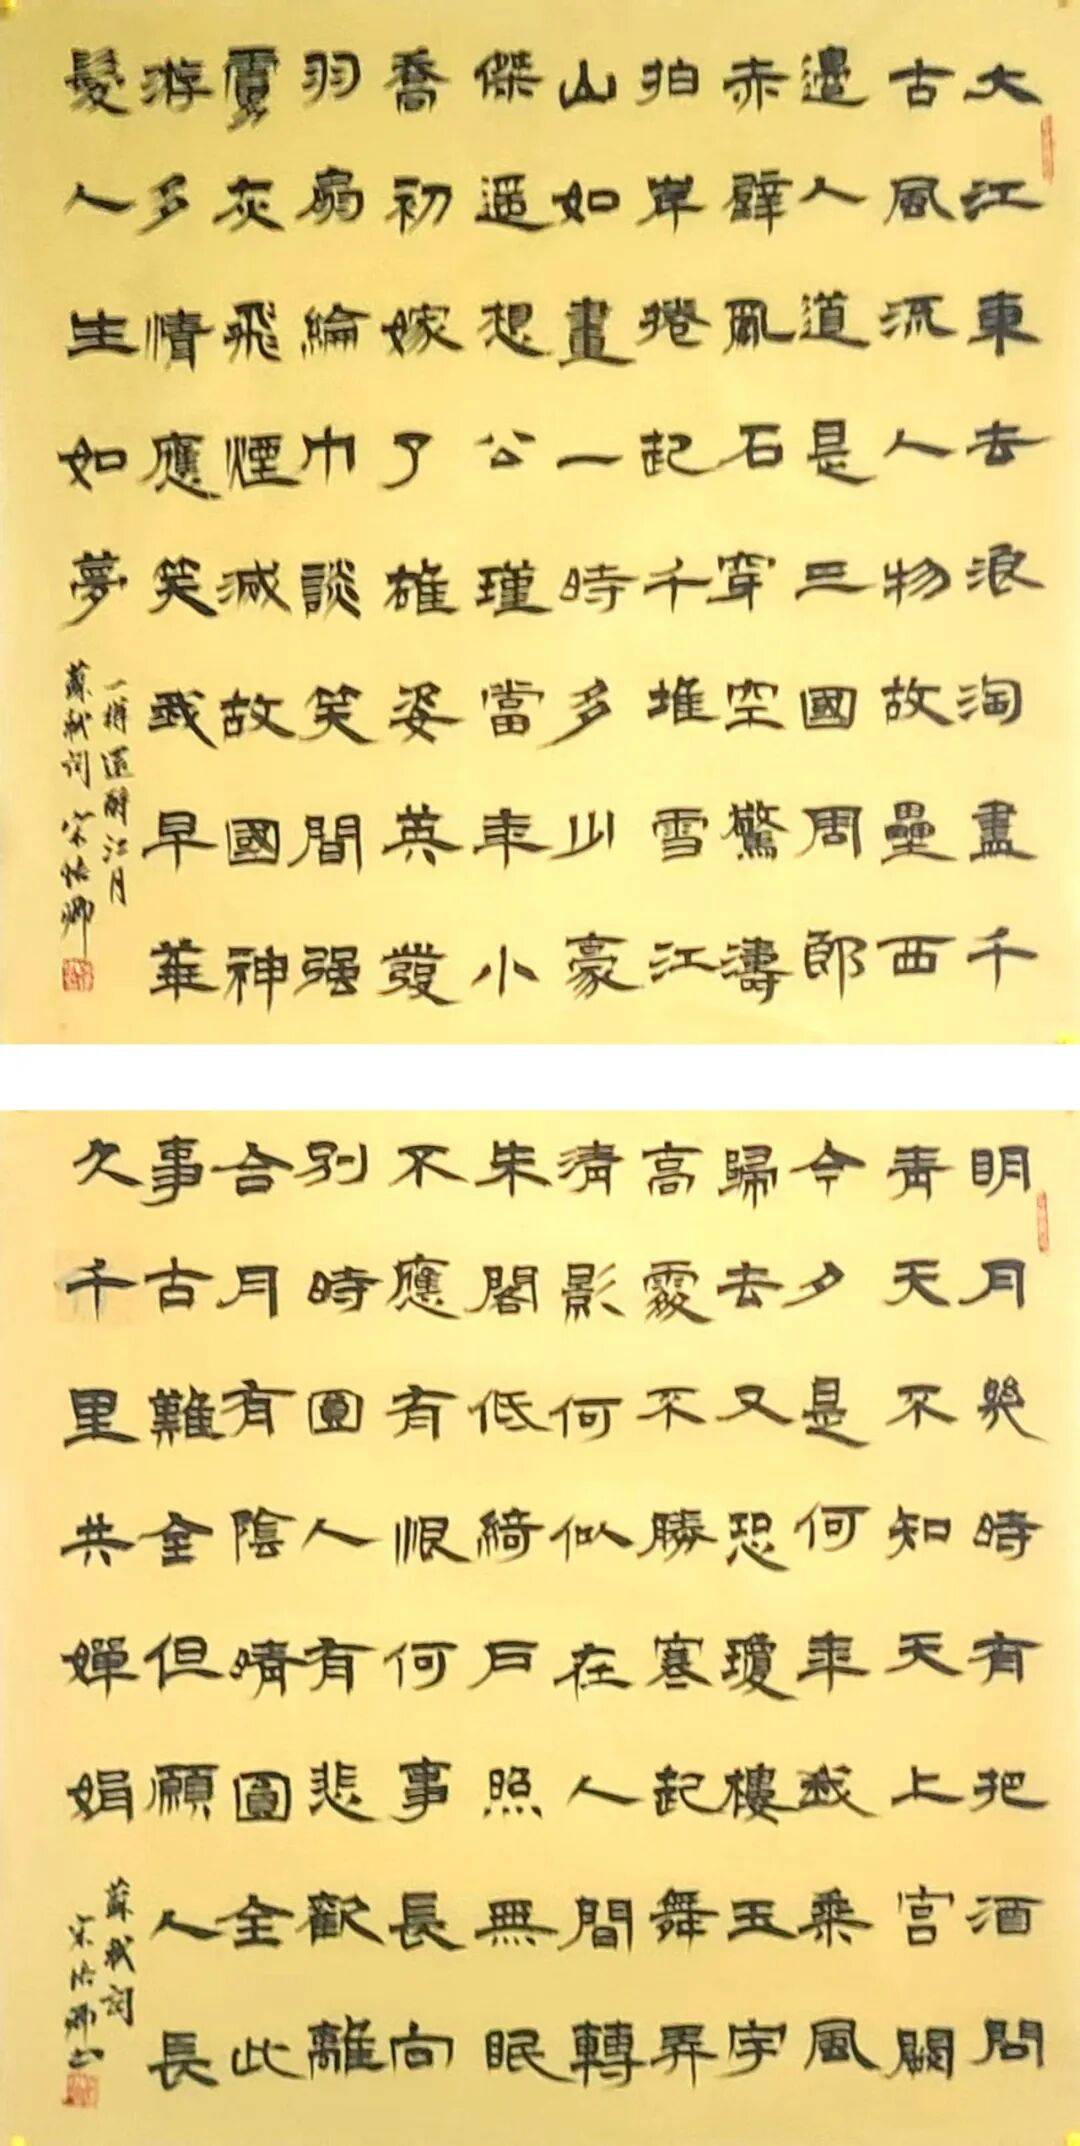 大江東去浪淘盡千
古風流人物故壘西
邊人道是三國周郎
赤壁亂石穿空驚濤
拍岸捲起千堆雪江
山如畫一時多少豪
傑遥想公瑾當年小
喬初嫁了雄姿英發
羽扇綸巾談笑間强
虜灰飛煙滅故國神
游多情應笑我早華
髮人生如夢
一樽還酹江月
蘇軾詞 宋卿
明月幾時有把酒問
青天不知天上宮闕
今夕是何年我乘風
歸去又恐瓊樓玉宇
高處不勝寒起舞弄
清影何似在人間轉
朱閣低綺戶照無眠
不應有恨何事長向
別時圓人有悲歡離
合月有陰晴圓全此
事古難全但願人長
久千里共嬋娟
蘇軾詞
宋卿